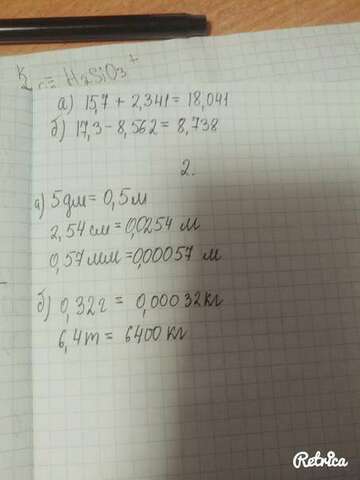 H₂SiO₃
а) 15,7 + 2,341 = 18,041
б) 17,3 - 8,562 = 8,738
2.
а) 5 дм = 0,5 м
2,54 см = 0,0254 м
0,57 мм = 0,00057 м
б) 0,32 г = 0,00032 кг
6,4 т = 6400 кг
Retrica